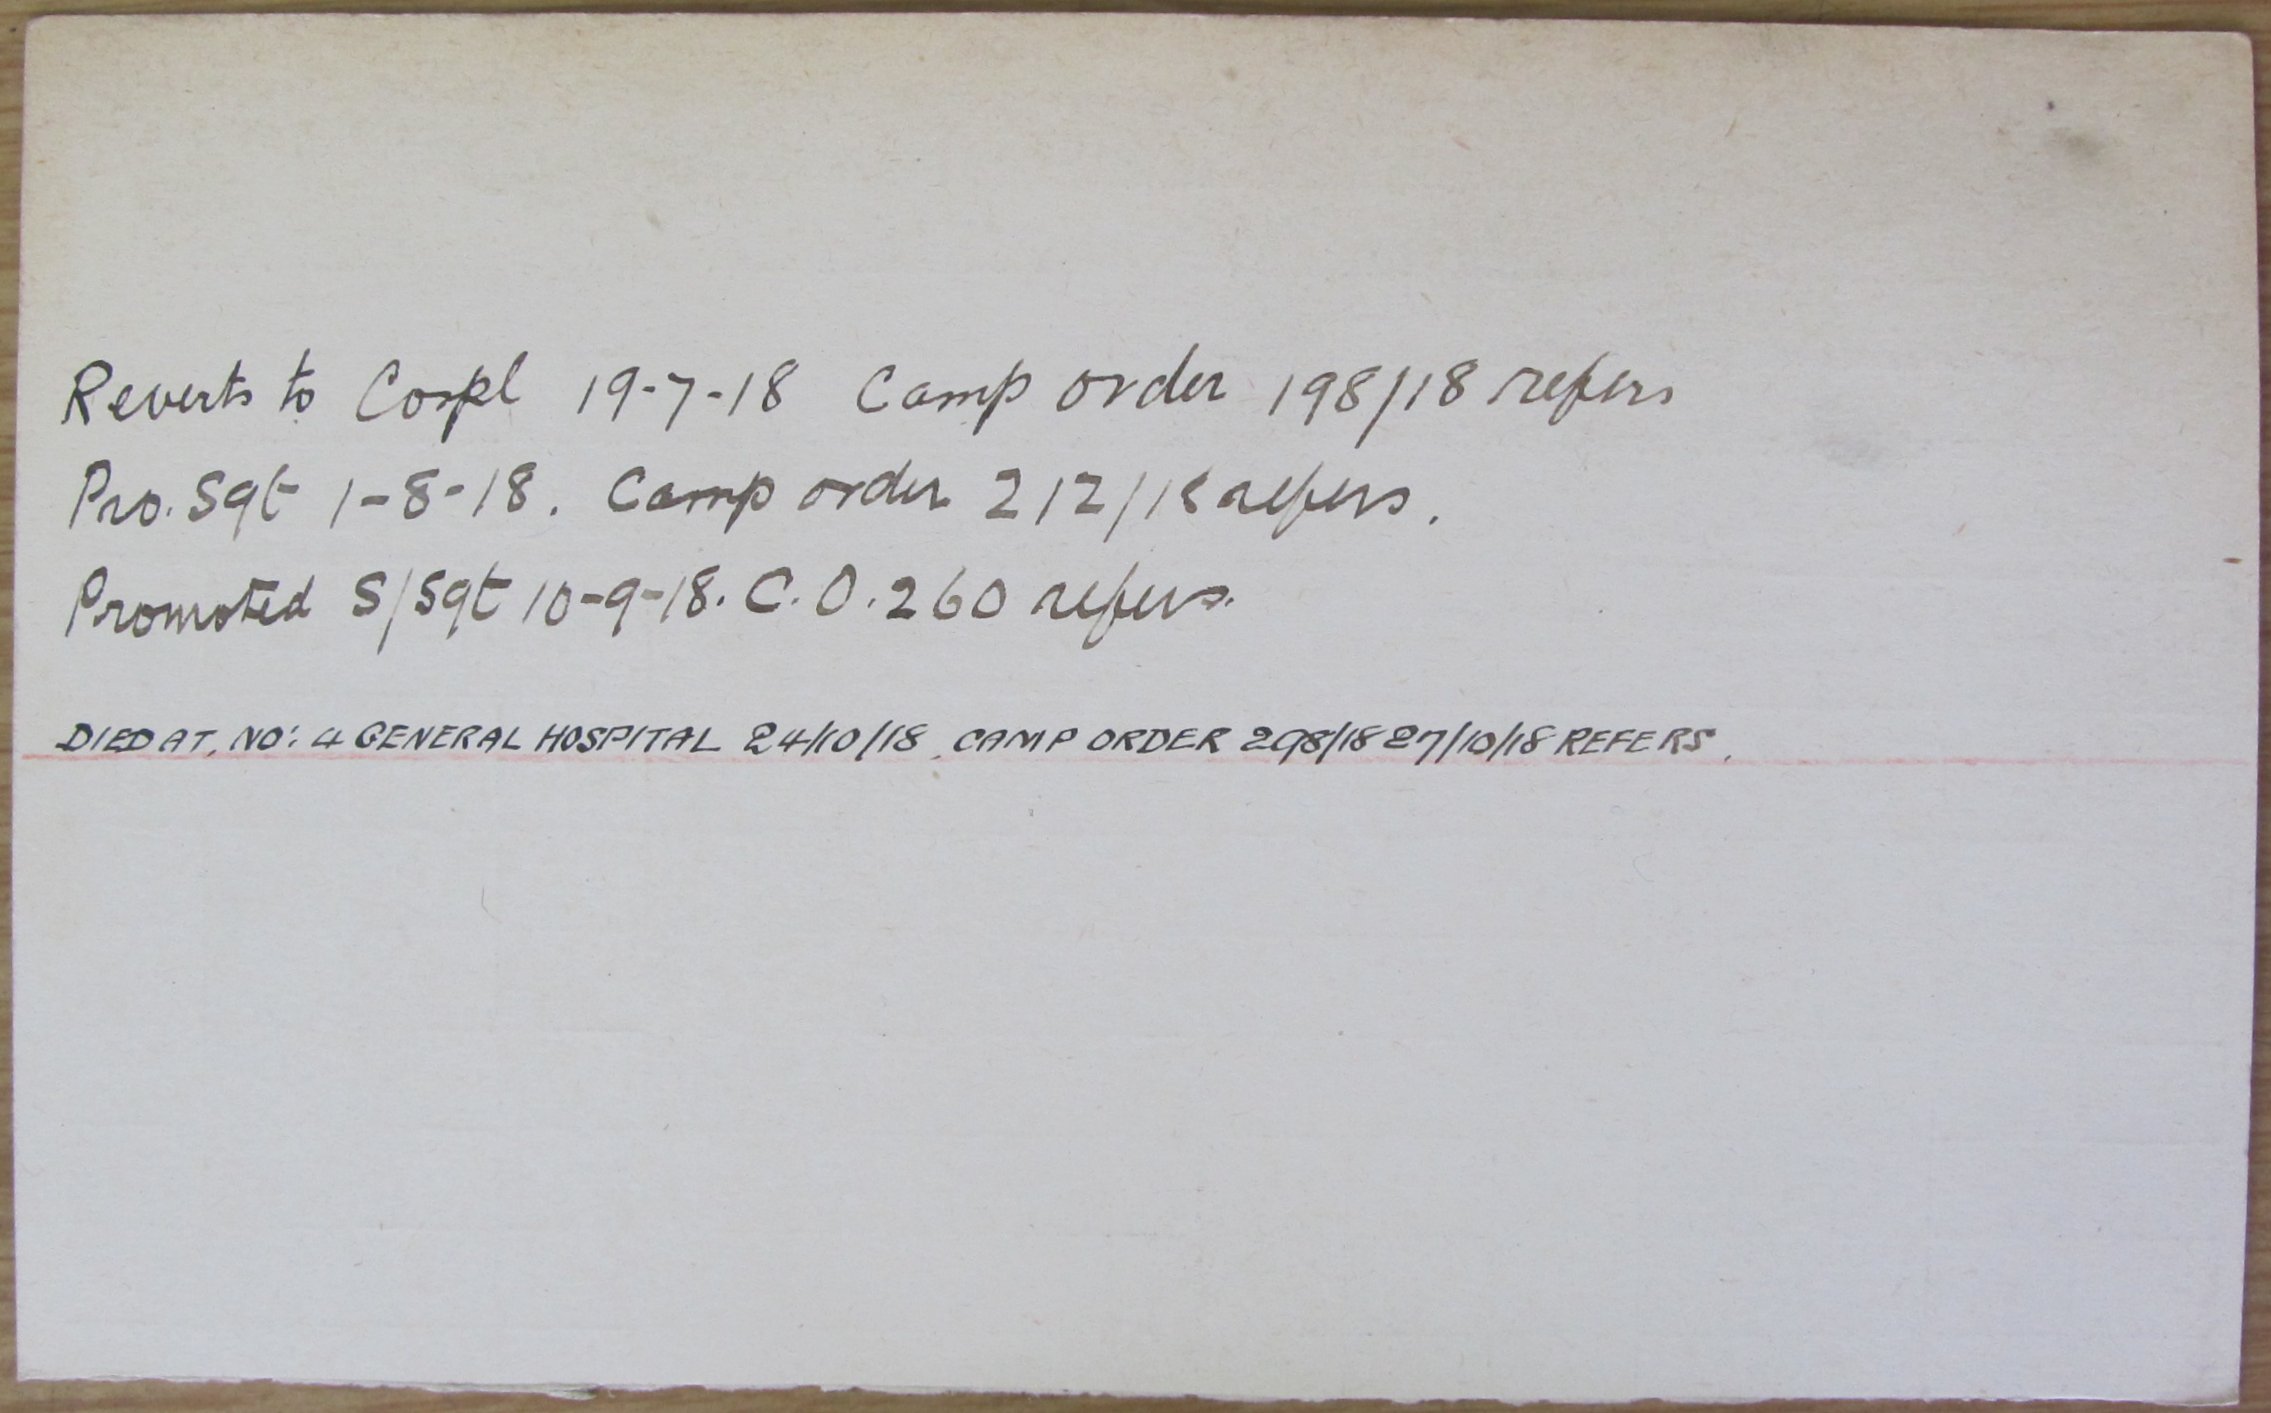 Reverts to Corpl 19-7-18 Camp order 198/18 refers
Pro. Sgt 1-8-18. Camp order 212/18 refers.
Promoted S/Sgt 10-9-18. C.O. 260 refers.
DIED AT, NO: 4 GENERAL HOSPITAL 24/10/18, CAMP ORDER 298/18 27/10/18 REFERS.